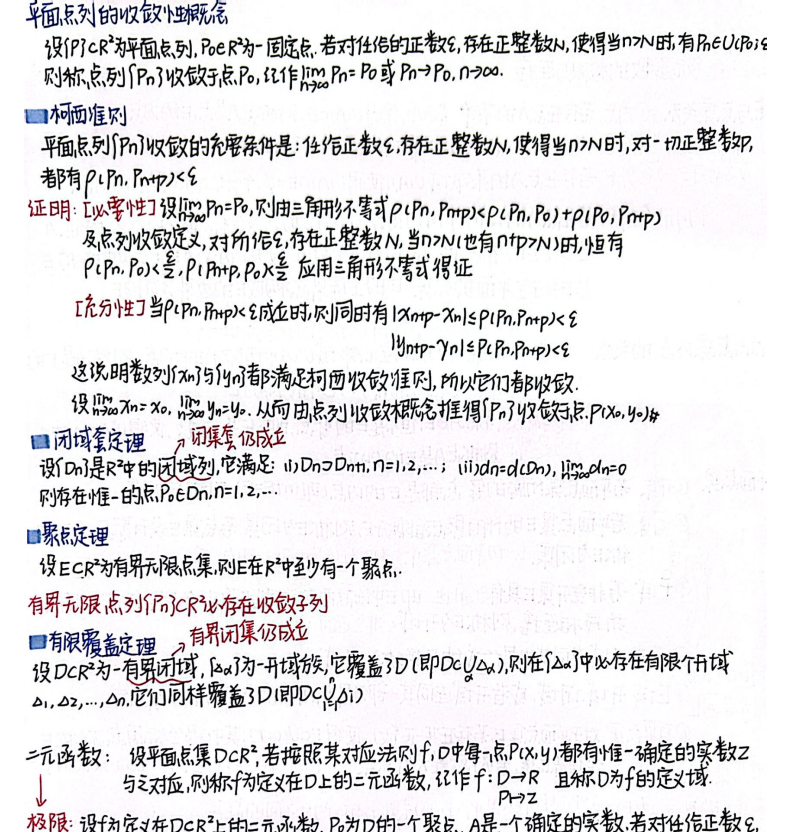 平面点列的收敛性概念
设{P}⊂R²为平面点列,P₀∈R²为一固定点.若对任给的正数ε,存在正整数N,使得当n>N时,有Pn∈U(P₀;ε
则称点列{Pn}收敛于点P₀,记作lim n→∞ Pn=P₀ 或 Pn→P₀,n→∞.
柯西准则
平面点列{Pn}收敛的充要条件是:任给正数ε,存在正整数N,使得当n>N时,对一切正整数p,
都有ρ(Pn,Pn+p)<ε
证明:[必要性]设lim n→∞ Pn=P₀,则由三角形不等式ρ(Pn,Pn+p)<ρ(Pn,P₀)+ρ(P₀,Pn+p)
及点列收敛定义,对所给ε,存在正整数N,当n>N(也有n+p>N)时,恒有
ρ(Pn,P₀)<ε/2,ρ(Pn+p,P₀)<ε/2 应用三角形不等式得证
[充分性]当ρ(Pn,Pn+p)<ε成立时,则同时有|xn+p-xn|≤ρ(Pn,Pn+p)<ε
|yn+p-yn|≤ρ(Pn,Pn+p)<ε
这说明数列{xn}与{yn}都满足柯西收敛准则,所以它们都收敛.
设lim n→∞ xn=x₀, lim n→∞ yn=y₀.从而由点列收敛概念推得{Pn}收敛于点P(x₀,y₀)#
闭域套定理 ↗闭集套仍成立
设{Dn}是R²中的闭域列,它满足:(i)Dn⊃Dn+1,n=1,2,…; (ii)dn=d(Dn),lim n→∞ dn=0
则存在惟一的点P₀∈Dn,n=1,2,…
聚点定理
设E⊂R²为有界无限点集,则E在R²中至少有一个聚点.
有界无限点列{Pn}⊂R²必存在收敛子列
有限覆盖定理 ↗有界闭集仍成立
设D⊂R²为一有界闭域,{Δα}为一开域族,它覆盖了D(即D⊂∪α Δα),则在{Δα}中必存在有限个开域
Δ1,Δ2,…,Δn,它们同样覆盖了D(即D⊂∪ⁿi=1 Δi)
二元函数: 设平面点集D⊂R²,若按照某对应法则f,D中每一点P(x,y)都有惟一确定的实数z
与之对应,则称f为定义在D上的二元函数,记作f:D→R 且称D为f的定义域.
P↦z
极限:设f为定义在D⊂R²上的二元函数,P₀为D的一个聚点,A是一个确定的实数.若对任给正数ε,